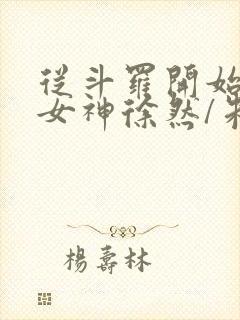 從斗羅開始
女神徐然/
楊壽林